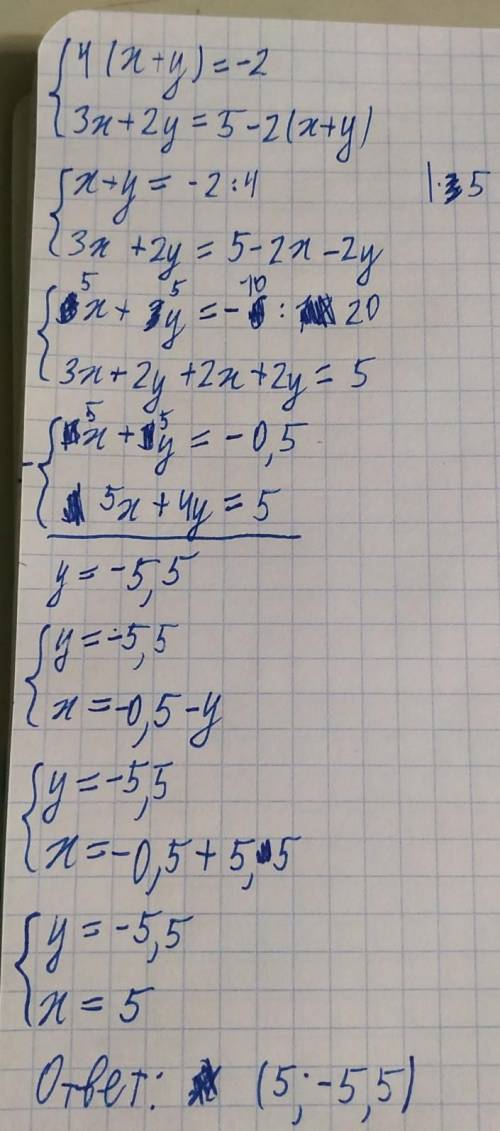 4(x+y)=-2
3x+2y=5-2(x+y)
x+y=-2:4 |·5
3x+2y=5-2x-2y
5x+5y=-10:20
3x+2y+2x+2y=5
5x+5y=-0,5
5x+4y=5
y=-5,5
y=-5,5
x=-0,5-y
y=-5,5
x=-0,5+5,5
y=-5,5
x=5
Ответ: (5;-5,5)